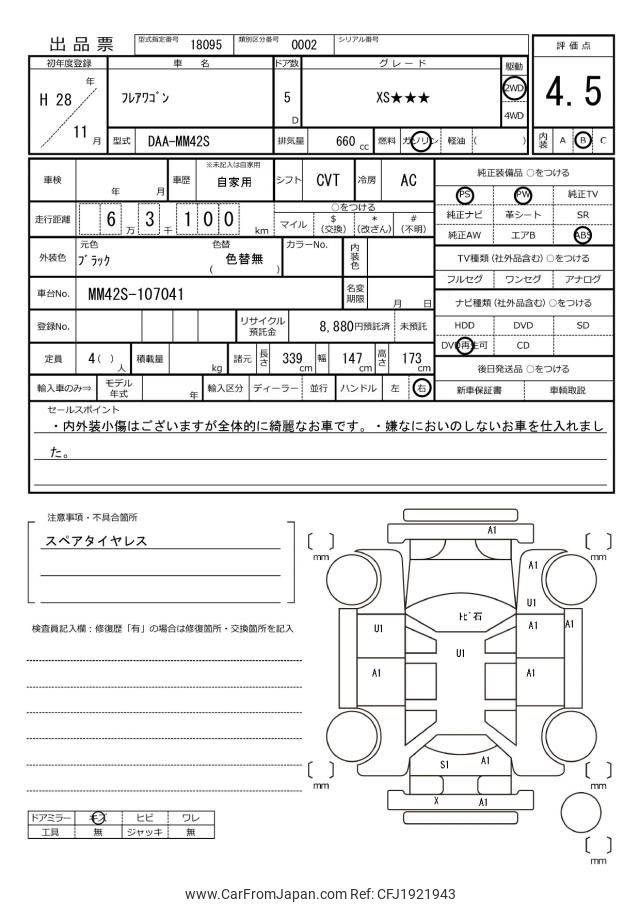 出品票 型式指定番号 18095 類別区分番号 0002 シリアル番号
評価点
4.5
内装 A B C
初年度登録 車名 ドア数 グレード 駆動
H 28 年 / 11 月
フレアワゴン 5 D XS★★★ 2WD 4WD
型式 DAA-MM42S 排気量 660 cc 燃料 ガソリン 軽油 ( )
車検 年 月 車歴 ※未記入は自家用 自家用 シフト CVT 冷房 AC
走行距離 6 万 3 千 1 0 0 km
○をつける
マイル $ (交換) * (改ざん) # (不明)
外装色 元色 ブラック 色替 ( 色替無 ) カラーNo. 内装色
車台No. MM42S-107041 名変期限 月 日
登録No. リサイクル預託金 8,880円預託済 未預託
定員 4( ) 人 積載量 kg 諸元 長さ 339 cm 幅 147 cm 高さ 173 cm
輸入車のみ⇒ モデル年式 年 輸入区分 ディーラー 並行 ハンドル 左 右
純正装備品 ○をつける
PS PW 純正TV
純正ナビ 革シート SR
純正AW エアB ABS
TV種類(社外品含む) ○をつける
フルセグ ワンセグ アナログ
ナビ種類(社外品含む) ○をつける
HDD DVD SD
DVD再生可 CD
後日発送品 ○をつける
新車保証書 車輌取説
セールスポイント
・内外装小傷はございますが全体的に綺麗なお車です。・嫌なにおいのしないお車を仕入れまし
た。
注意事項・不具合箇所
スペアタイヤレス
検査員記入欄：修復歴「有」の場合は修復箇所・交換箇所を記入
ドアミラー キズ ヒビ ワレ
工具 無 ジャッキ 無
A1
mm mm
A1
U1
トビ石
U1 A1 A1
U1
A1 A1
S1 A1
mm mm
X A1
mm
www.CarFromJapan.com Ref: CFJ1921943